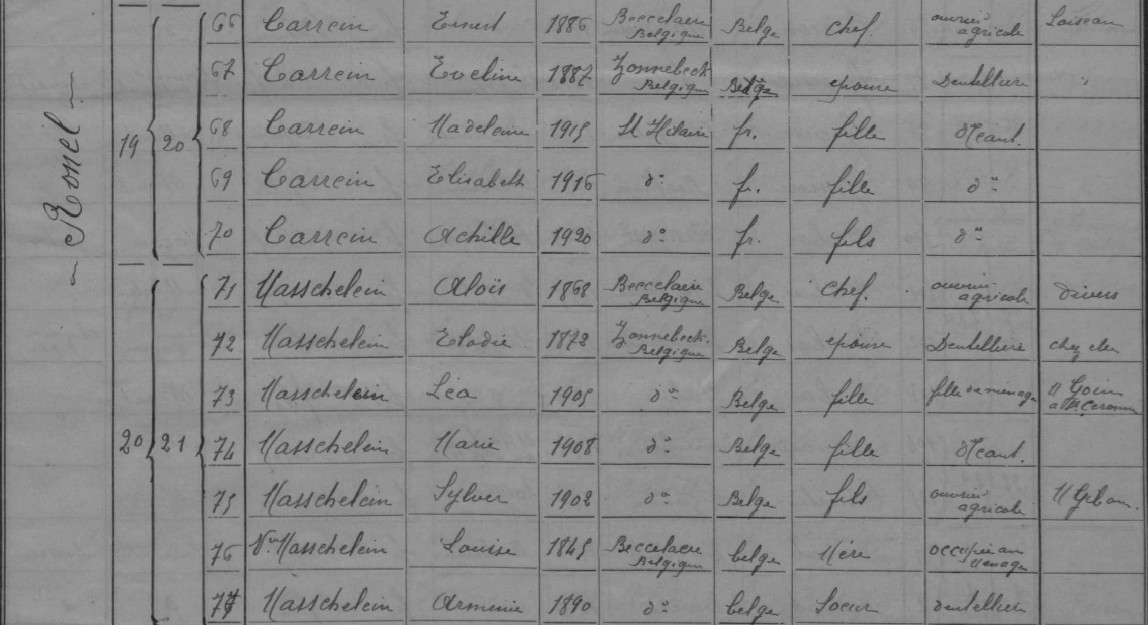 Ronel
19 20
66 Carrein Ernest 1886 Beccelaere Belgique Belge chef. ouvrier agricole Loiseau
67 Carrein Eveline 1887 Zonnebeck Belgique Belge epouse Dentellière "
68 Carrein Madeleine 1915 St Hilaire fr. fille néant.
69 Carrein Elisabeth 1916 d° fr. fille d°
70 Carrein Achille 1920 d° fr. fils d°
20 21
71 Masschelein Aloïs 1868 Beccelaere Belgique Belge chef. ouvrier agricole divers
72 Masschelein Elodie 1872 Zonnebeck. Belgique Belge epouse Dentellière chez elle
73 Masschelein Léa 1905 d° Belge fille fille de ménage M Goin
74 Masschelein Marie 1908 d° Belge fille néant.
75 Masschelein Sylver 1902 d° Belge fils ouvrier agricole M
76 Vve Masschelein Louise 1845 Beccelaere Belgique belge Mère occupée au ménage
77 Masschelein Armenie 1890 d° belge Soeur dentellière